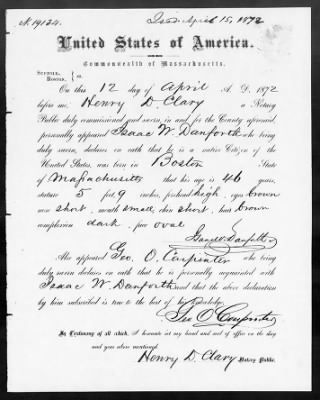 № 19124.
Issd. April 15, 1872
United States of America.
Commonwealth of Massachusetts.
SUFFOLK, BOSTON, } ss.
On this 12 day of April A. D. 1872
before me, Henry D. Clary a Notary
Public duly commissioned and sworn in and for the County aforesaid,
personally appeared Isaac W. Danforth who being
duly sworn, declares on oath that he is a native Citizen of the
United States, was born in Boston State
of Massachusetts that his age is 46 years,
stature 5 feet 9 inches, forehead high, eyes brown
nose short, mouth small, chin short, hair brown
complexion dark, face oval
Isaac W. Danforth
Also appeared Geo. O. Carpenter who being
duly sworn declares on oath that he is personally acquainted with
Isaac W. Danforth and that the above declaration
by him subscribed is true to the best of his knowledge.
Geo O Carpenter
In Testimony of all which, I hereunto set my hand and seal of office on the day
and year above mentioned.
Henry D. Clary Notary Public.